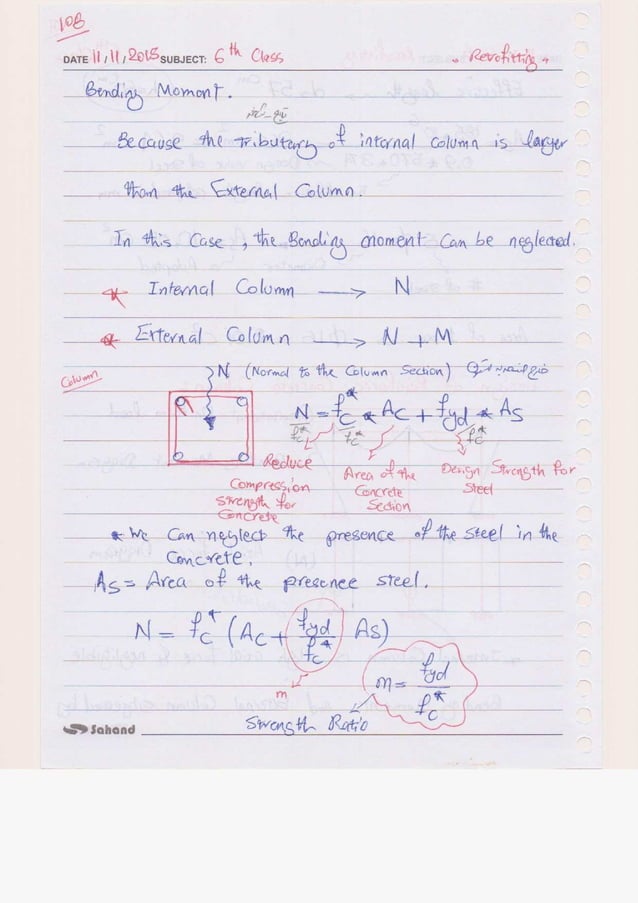 108
DATE 11/11/2015 SUBJECT: 6th Class "Retrofitting"
Bending Moment.
Because the Tributary of internal column is larger
than the External Column.
In this Case, the Bending moment Can be neglected.
* Internal Column → N
* External Column → N + M
Column
N (Normal to the Column Section)
N = fc* * Ac + fyd * As
fc* fc* fc*
Reduce Compression Strength for Concrete
Area of the Concrete Section
Design Strength For Steel
* We Can neglect the presence of the steel in the
Concrete.
As = Area of the presence steel.
N = fc* (Ac + fyd/fc* As)
m
m = fyd/fc*
Strength Ratio
Sahand